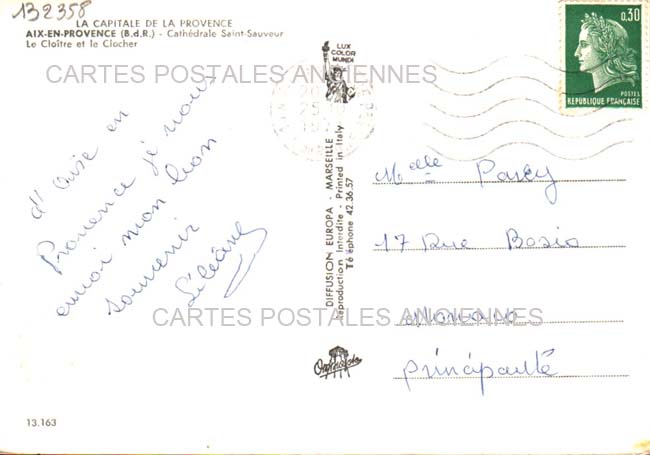 132358
LA CAPITALE DE LA PROVENCE
AIX-EN-PROVENCE (B.d.R.) - Cathédrale Saint-Sauveur
Le Cloître et le Clocher
LUX
COLOR
MUNDI
0,30
POSTES
REPUBLIQUE FRANÇAISE
CARTES POSTALES ANCIENNES
d'Aix en
Provence je vous
envoi mon bon
souvenir
DIFFUSION EUROPA - MARSEILLE
Reproduction Interdite - Printed in Italy
Téléphone 42.36.57
Melle
17 Rue Bosio
Monaco
Principauté
CARTES POSTALES ANCIENNES
13.163